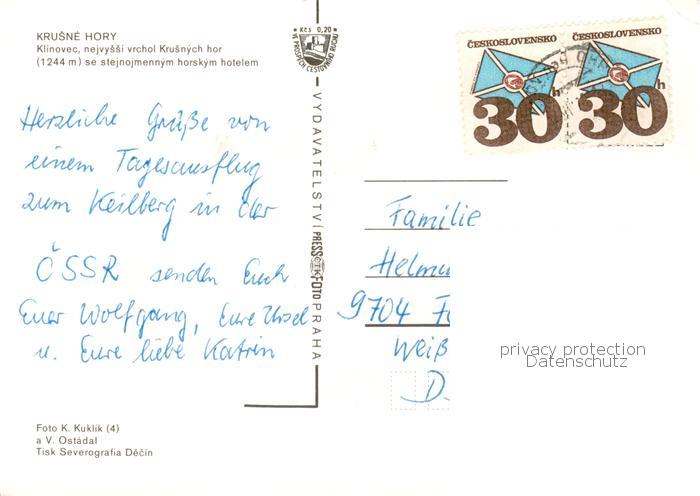 KRUŠNÉ HORY
Klínovec, nejvyšší vrchol Krušných hor
(1244 m) se stejnojmenným horským hotelem
Kčs 0,20
VE PROSPĚCH CESTOVNÍHO RUCHU
ČESKOSLOVENSKO
30h
ČESKOSLOVENSKO
30h
Herzliche Grüße von
einem Tagesausflug
zum Keilberg in der
ČSSR senden Euch
Euer Wolfgang, Eure Ursel
u. Eure liebe Katrin
VYDAVATELSTVÍ PRESSFOTO PRAHA
Familie
Helmu
9704
Weiß
D
privacy protection
Datenschutz
Foto K. Kuklík (4)
a V. Ostádal
Tisk Severografia Děčín